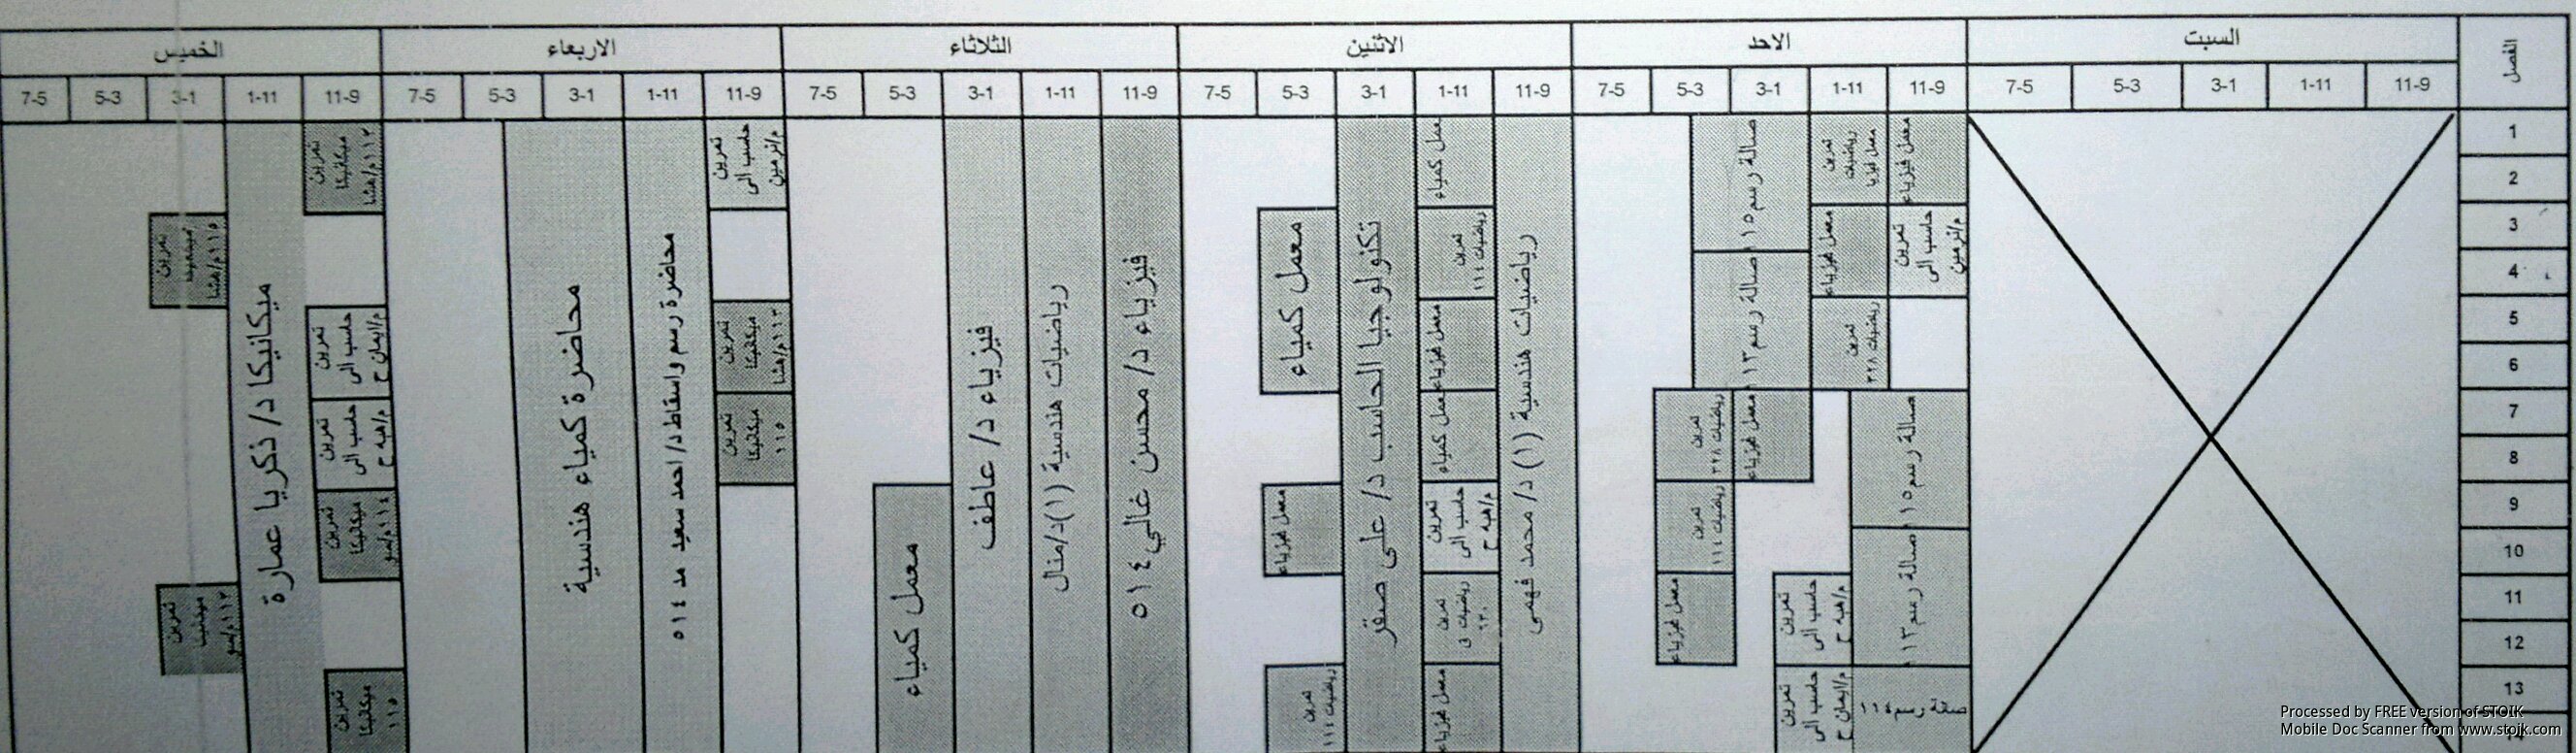 الفصل
السبت
الاحد
الاثنين
الثلاثاء
الاربعاء
الخميس
11-9
1-11
3-1
5-3
7-5
11-9
1-11
3-1
5-3
7-5
11-9
1-11
3-1
5-3
7-5
11-9
1-11
3-1
5-3
7-5
11-9
1-11
3-1
5-3
7-5
11-9
1-11
3-1
5-3
7-5
1
2
3
4
5
6
7
8
9
10
11
12
13
معمل فيزياء
تمرين
حاسب الى
م/نرمين
صالة رسم ١١٥
صالة رسم ١١٣
تمرين
رياضيات
معمل فيزيا
معمل فيزياء
تمرين
رياضيات ٣٢٨
تمرين
حاسب الى
م/هبه ح
تمرين
حاسب الى
م/ايمان ح
صالة رسم ١١٥
صالة رسم ١١٣
معمل فيزياء
تمرين
رياضيات ٣٢٨
تمرين
رياضيات ١١٤
معمل فيزياء
رياضيات هندسية (١) د/ محمد فهمى
معمل كمياء
تمرين
رياضيات ١١٤
معمل فيزياء
معمل كمياء
تمرين
حاسب الى
م/هبه ح
تمرين
رياضيات فى
معمل فيزياء
تكنولوجيا الحاسب د/ على صقر
معمل كمياء
معمل فيزياء
تمرين
رياضيات ١١٤
فيزياء د/ محسن غالي ٥١٤
رياضيات هندسية (١)د/منال
فيزياء د/ عاطف
معمل كمياء
تمرين
حاسب الى
م/نرمين
تمرين
ميكانيكا
١١٣م/هشا
تمرين
ميكانيكا
١١٥
محاضرة رسم واسقاط د/ احمد سعيد مد ٥١٤
محاضرة كمياء هندسية
تمرين
ميكانيكا
١١٣م/هشا
تمرين
حاسب الى
م/ايمان ح
تمرين
حاسب الى
م/هبه ح
تمرين
ميكانيكا
تمرين
ميكانيكا
١١٥
ميكانيكا د/ ذكريا عمارة
تمرين
١١٥م/هشا
تمرين
Processed by FREE version of STOIK
Mobile Doc Scanner from www.stoik.com